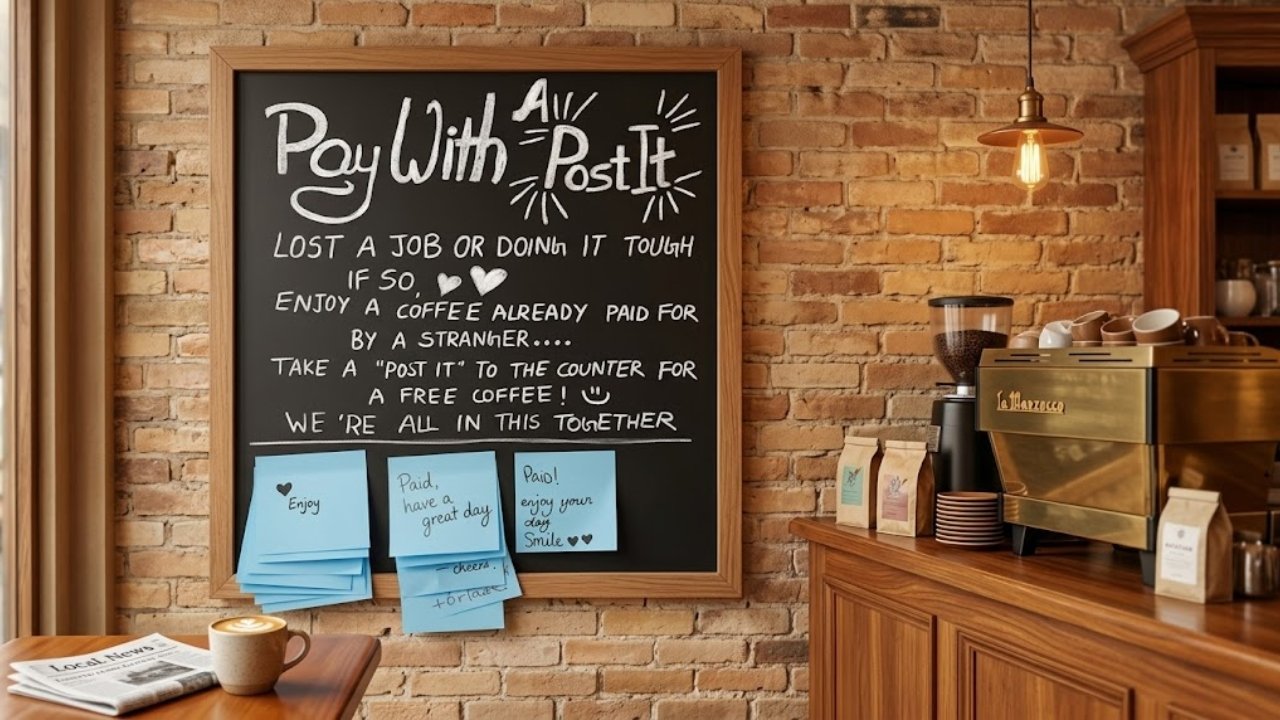 Pay With A Post It
LOST A JOB OR DOING IT TOUGH
IF SO,
ENJOY A COFFEE ALREADY PAID FOR
BY A STRANGER....
TAKE A "POST IT" TO THE COUNTER FOR
A FREE COFFEE!
WE'RE ALL IN THIS TOGETHER
Enjoy
Paid,
have a
great day
– cheers.
Paid!
enjoy your
day
Smile
Local News
La Marzocco